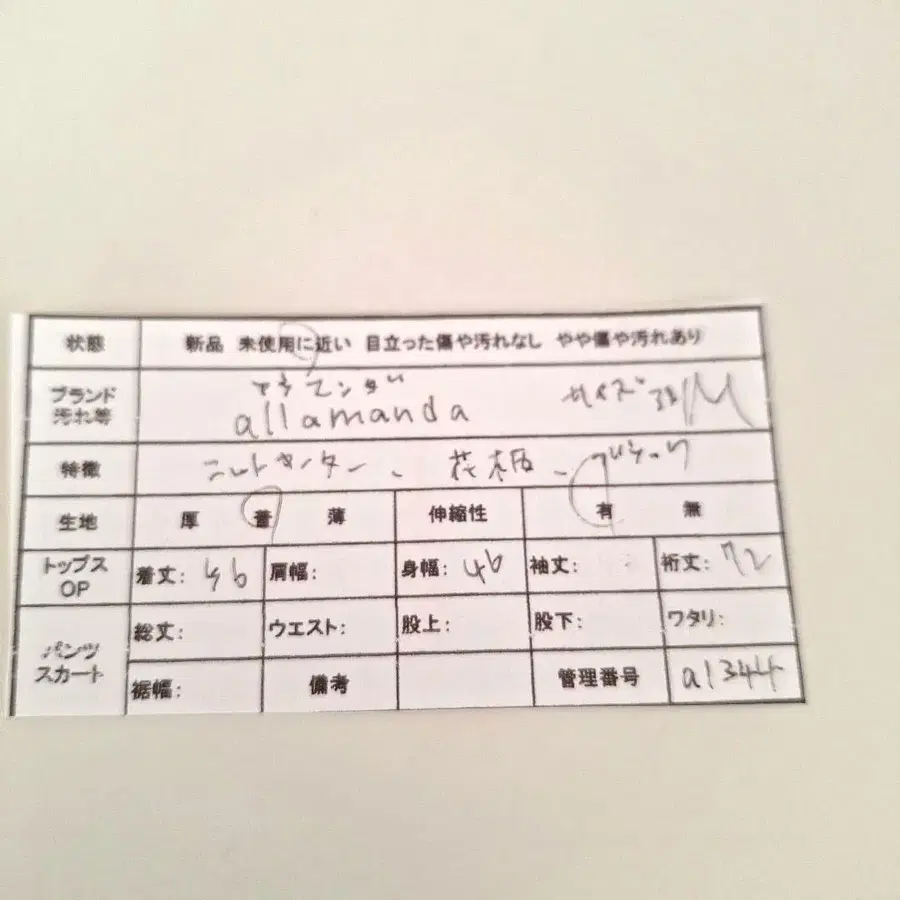 状態 新品 未使用に近い 目立った傷や汚れなし やや傷や汚れあり
ブランド
汚れ等
アラマンダ
allamanda サイズ M
特徴 ニットセーター、花柄、
生地 厚 普 薄 伸縮性 有 無
トップス
OP
着丈: 56 肩幅: 身幅: 46 袖丈: 裄丈: 72
パンツ
スカート
総丈: ウエスト: 股上: 股下: ワタリ:
裾幅: 備考 管理番号 a1344